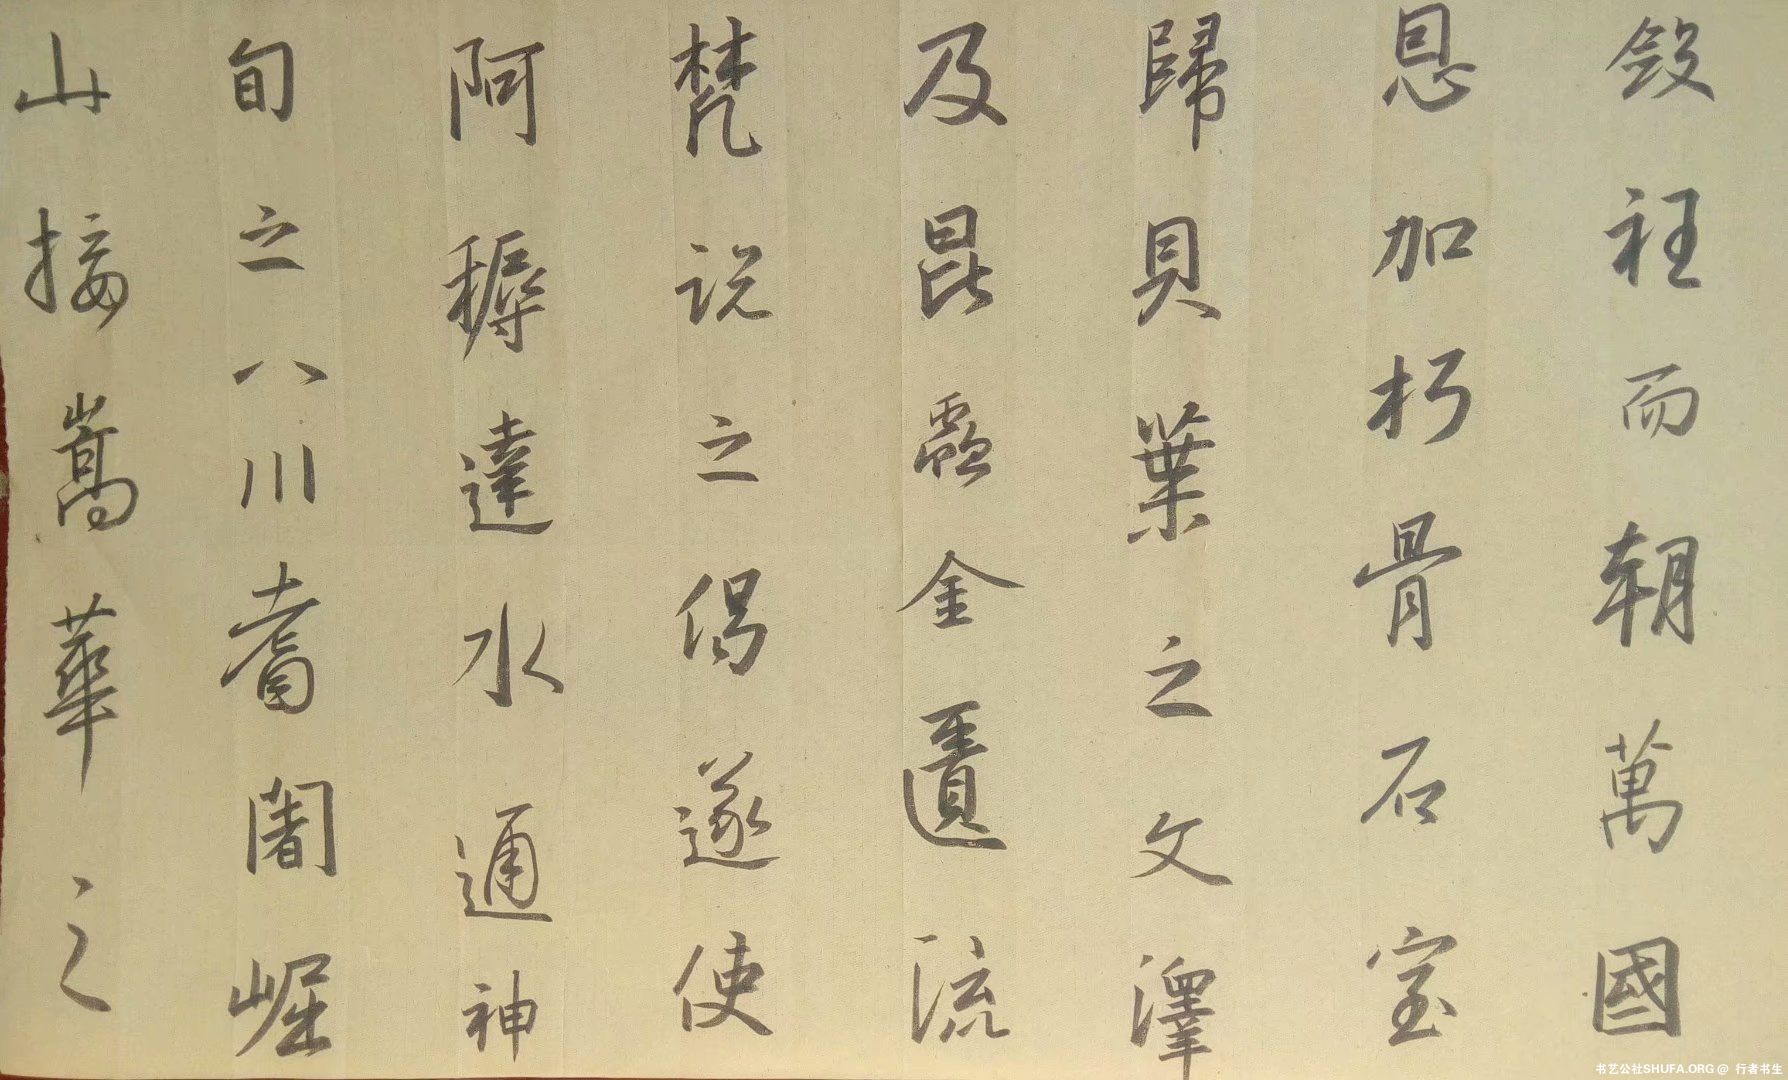 斂衽而朝萬國
恩加朽骨石室
歸貝葉之文澤
及昆蟲金匱流
梵説之偈遂使
阿耨達水通神
旬之八川耆闍崛
山接嵩華之
书艺公社SHUFA.ORG @ 行者书生